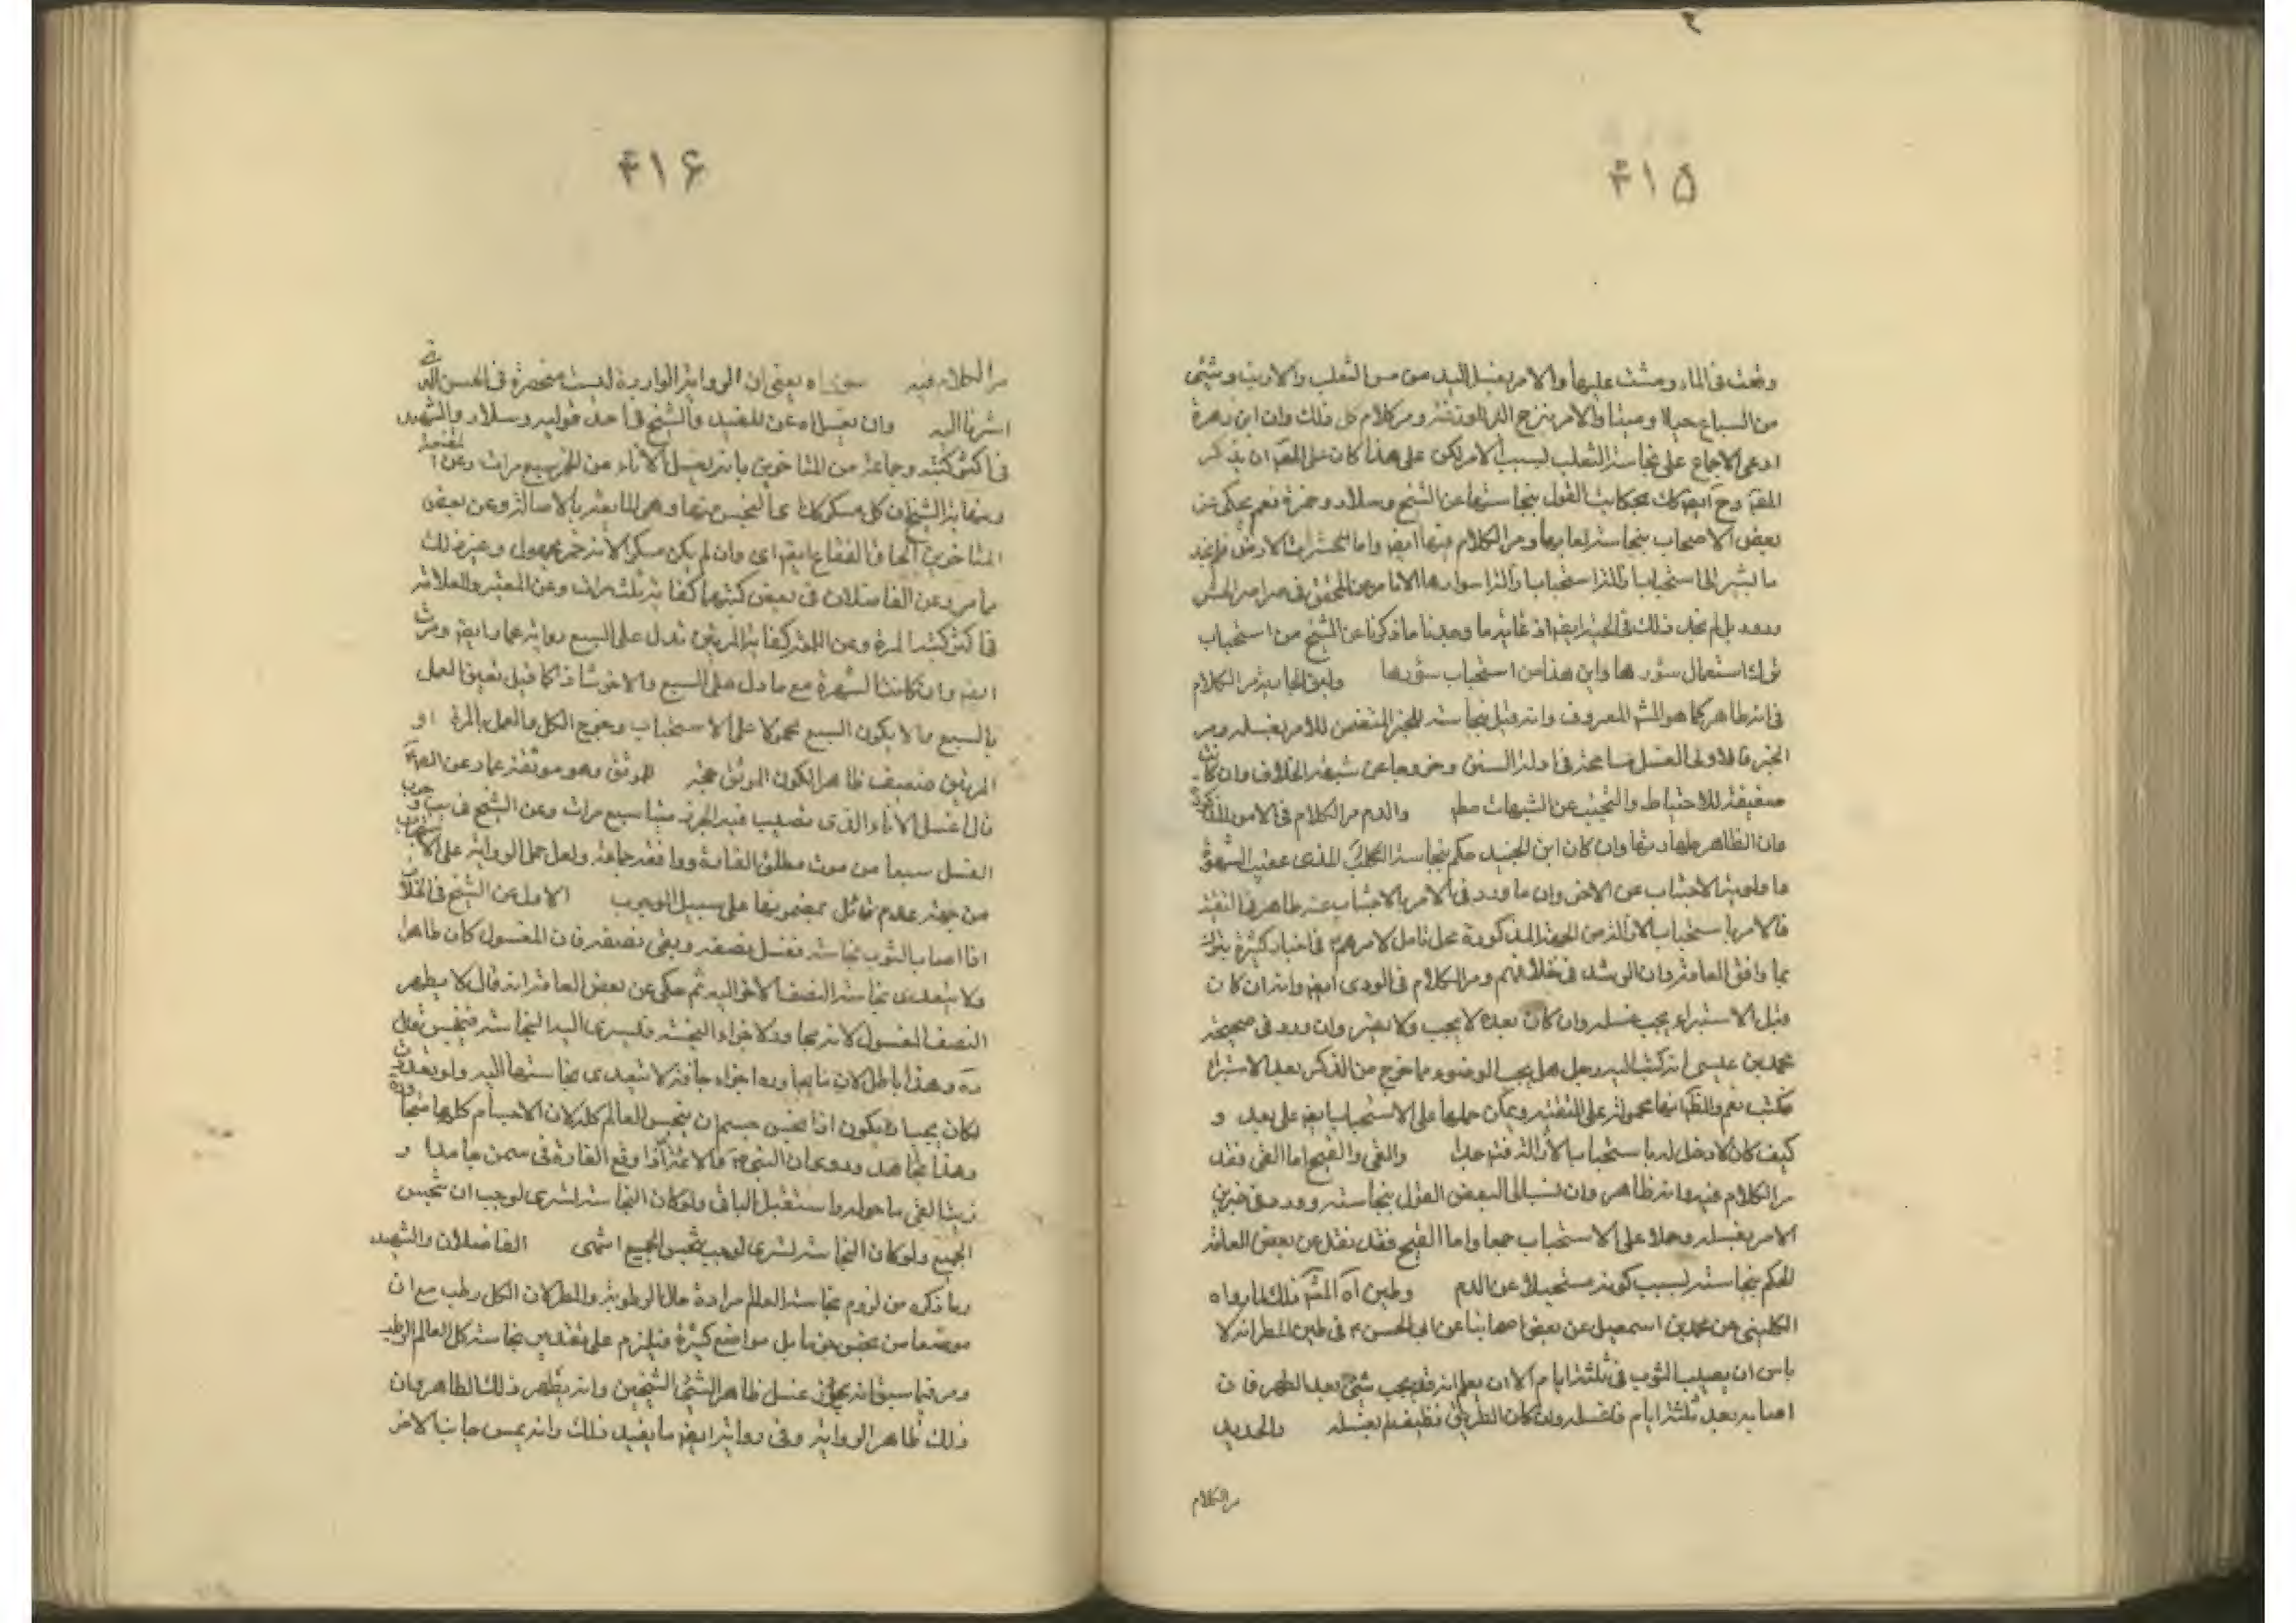 ۴۱۵
وقعت في الماء ومشت عليها والامر بغسل اليد من مس الثعلب والارنب وشيئ
من السباع حيا وميتا والامر بنزح الدلاء ومر كلام كل ذلك وان ابن زهرة
ادعى الاجماع على نجاسة الثعلب بسبب الامر لكن على هذا كان على المصّ ان يذكر
وح ايضا بحكاية القول بنجاستها عن الشيخ وسلار وحمزة نعم يحكى عن
بعض الاصحاب بنجاسة لعابها ومر الكلام فيها ايضا واما الحشرات الارض فلم نجد
ما يشير الى استحباب
ورود بل لم نجد ذلك في الحية ايضا اذ غاية ما وجدنا ما ذكرنا عن الشيخ من استحباب
ترك استعمال سؤرها واين هذا من استحباب سؤرها
في انه طاهر كما هو المشـ المعروف وانه قيل بنجاسته للخبر المتضمن للامر بغسله ومر
الخبر فالاولى الغسل مسامحة في ادلة السنن وخروجا عن شبهة الخلاف وان كانت
ضعيفة للاحتياط والتجنب عن الشبهات مط والدم مر الكلام في الامور المذكورة
وان الظاهر طهارتها وان كان ابن الجنيد حكم بنجاسة المذى عقيب الشهوة
الاجتناب عن الاخر وان ما ورد في الامر بالاجتناب عنه ظاهر في التقية
فالامر باستحباب الازالة من الجهة المذكورة محل تامل لامرهم في اخبار كثيرة بترك
ما وافق العامة وان الرشد في خلافهم ومر الكلام في الودى ايضا وانه ان كان
قبل الاستبراء يجب غسله وان كان بعده لا يجب ولا يضر وان ورد في صحيحة
محمد بن عيسى انه كتب اليه رجل هل يجب الوضوء مما خرج من الذكر بعد الاستبراء
فكتب نعم والظ انها محمولة على التقية ويمكن حملها على الاستحباب ايضا على بعد و
كيف كان لا دخل له باستحباب الازالة والقى والقيح اما القى فقد
مر الكلام فيه وانه طاهر وان نسب الى البعض القول بنجاسته وورد في خبرين
الامر بغسله وحملا على الاستحباب جمعا واما القيح فقد نقل عن بعض العامة
الحكم بنجاسته بسبب كونه مستحيلا عن الدم وطين اه المشـ ذلك لما رواه
الكليني عن محمد بن اسمعيل عن بعض اصحابنا عن ابى الحسن ع في طين المطر انه لا
باس ان يصيب الثوب في ثلثة ايام الا ان يعلم انه قد نجسه شئ بعد المطر فان
اصابه بعد ثلثة ايام فاغسله وان كان الطريق نظيفا لم يغسله والحديد
مر الكلام
۴۱۶
مر الكلام فيه اه يعنى ان الرواية الواردة ليست منحصرة في الحسن الذى
اشرنا اليه وان يغسل اه عن المفيد والشيخ في احد قوليه وسلار والشهيد
في اكثر كتبه وجماعة من المتاخرين بانه يغسل الاناء من الخمر سبع مرات وعن المقنعة
ونهاية الشيخ ان كل مسكر كذلك
المتاخرين الحاق الفقاع ايضا اى وان لم يكن مسكرا لانه خمر مجهول وغير ذلك
مما مر وعن الفاضلان في بعض كتبهما كفاية ثلث مرات وعن المعتبر والعلامة
في اكثر كتبه المرة وعن اللمعة كفاية المرتين تدل على السبع رواية عمار ايضا ومرت
ايضا وان كانت الشهرة مع ما دل على السبع والاخر شاذا كما قيل تعين العمل
بالسبع والا يكون السبع محمولا على الاستحباب وخرج الكل والعمل بالمرة او
المرتين ضعيف ظاهرا لكون الموثق حجة للموثق وهو موثقة عمار عن الصّ
قال اغسل الاناء الذى تصيب فيه الجرذ ميتا سبع مرات وعن الشيخ في وجوب
الغسل سبعا من موت مطلق الفارة ووافقه جماعة ولعل حمل الرواية على الاستحباب
من جهة عدم قائل بمضمونها على سبيل الوجوب الاول عن الشيخ في الخلاف
اذا اصاب الثوب نجاسة فغسل نصفه وبقى نصفه فان المغسول كان طاهرا
ولا يتعدى نجاسة النصف الاخر اليه ثم حكى عن بعض العامة انه قال لا يطهر
النصف المغسول لانه مجاور لاجزاء النجسة فتسرى اليه النجاسة فينجس قال
وهذا باطل لان ما يجاوره اجزاء جافة لا يتعدى نجاستها اليه ولو تعدت
لكان يجب ان يكون اذا نجس جسم ان ينجس العالم كله لان الاجسام كلها متجاورة
وهذا تجاهل وروى عن النبى ص والائمة انه اذا وقع الفارة في سمن جامد او
زيت القى ما حوله واستعمل الباقى ولو كان النجاسة تسرى لوجب ان ينجس
الجميع ولو كان النجاسة تسرى لوجب ينجس الجميع انتهى الفاضلان والشهيد
وما ذكره من لزوم نجاسة العالم مراده حال الرطوبة والمطر لان الكل رطب مع ان
موضعا من نجس يقينا بل مواضع كثيرة فيلزم على تقدير نجاسة كل العالم الرطب
ومر فيما سبق انه يجوز غسل ظاهر الشئ الثخين وانه يطهر ذلك الظاهر وان
ذلك ظاهر الرواية وفى رواية ايضا ما يفيد ذلك وانه يمس جانب الاخر